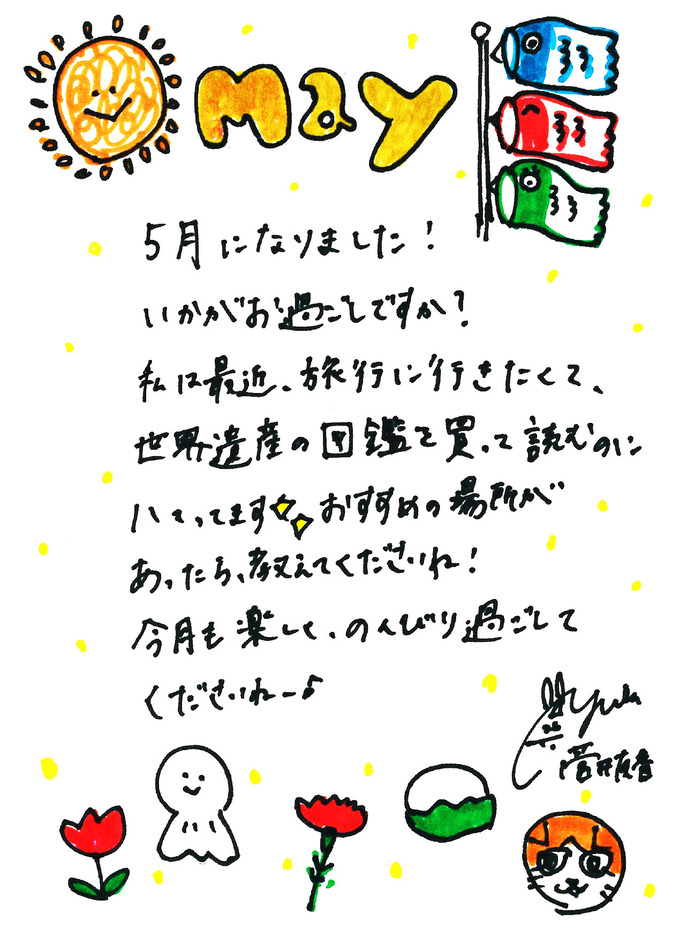 May
5月になりました!
いかがお過ごしですか?
私は最近、旅行に行きたくて、
世界遺産の図鑑を買って読むのに
ハマってます おすすめの場所が
あったら、教えてくださいね!
今月も楽しく、のんびり過ごして
くださいね〜♪